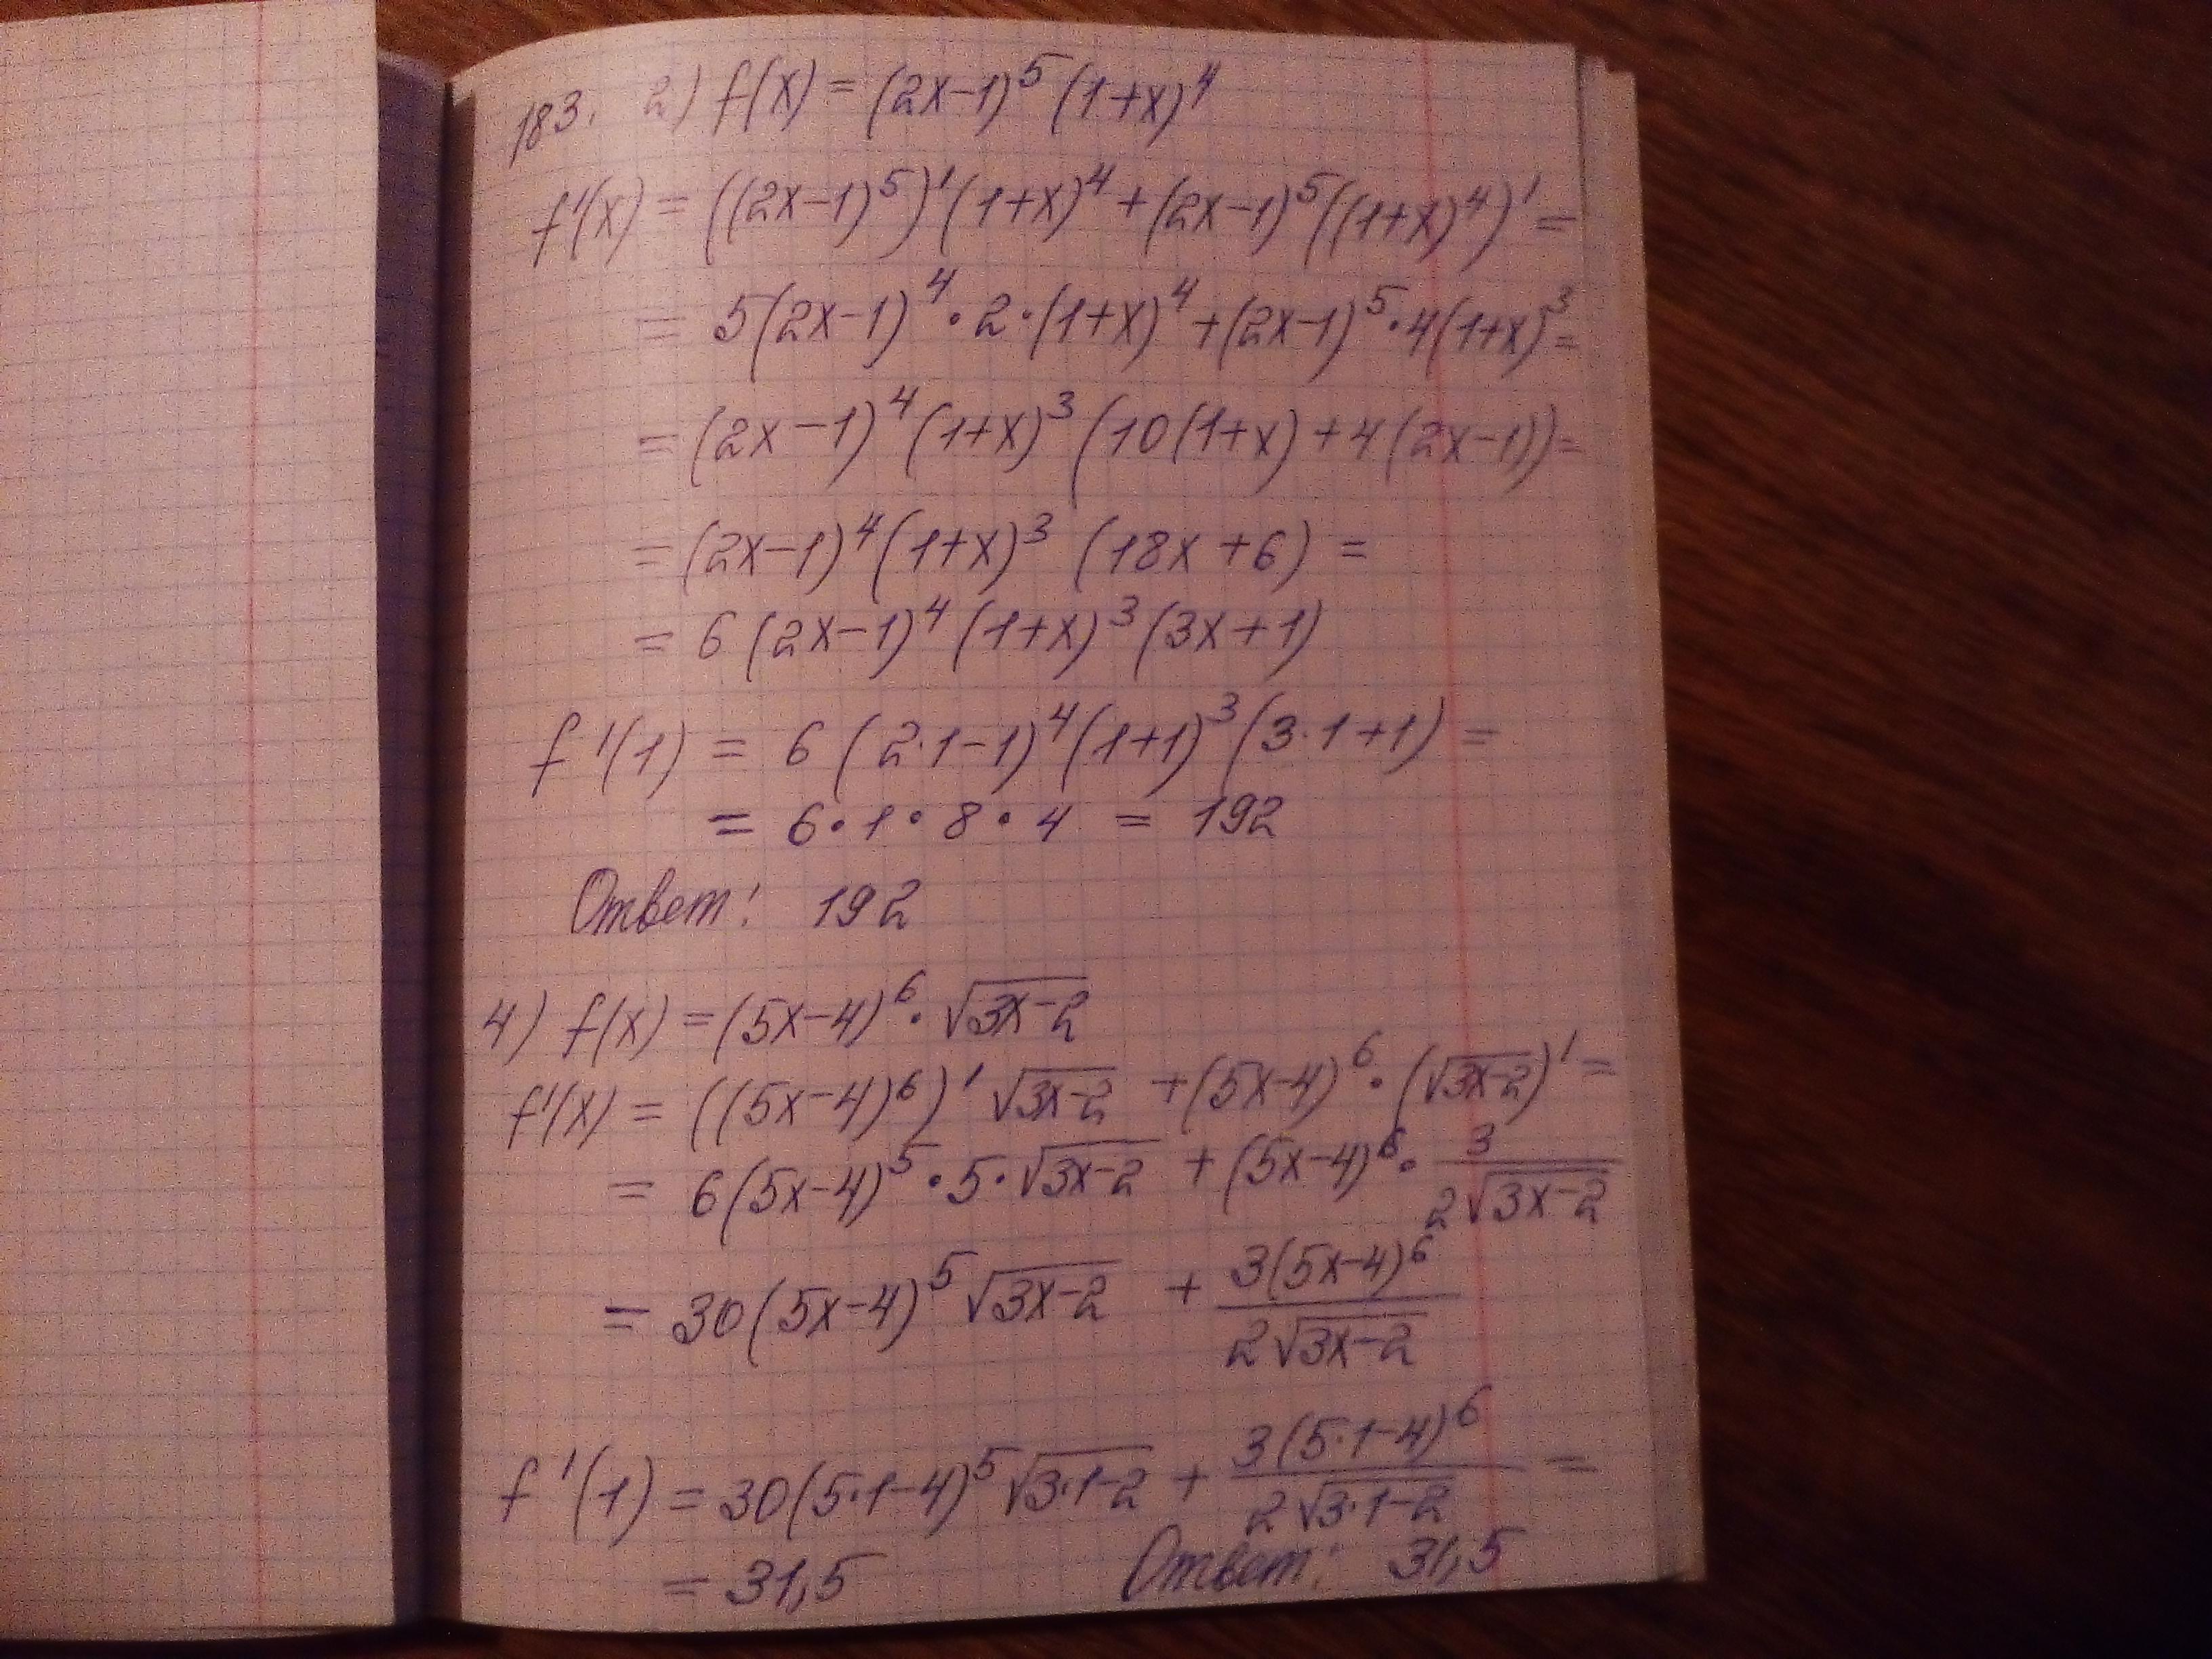 183. 2) f(x) = (2x-1)⁵ (1+x)⁴
f'(x) = ((2x-1)⁵)'(1+x)⁴ + (2x-1)⁵((1+x)⁴)' =
= 5(2x-1)⁴·2·(1+x)⁴ + (2x-1)⁵·4(1+x)³ =
= (2x-1)⁴(1+x)³(10(1+x)+4(2x-1)) =
= (2x-1)⁴(1+x)³ (18x+6) =
= 6(2x-1)⁴(1+x)³(3x+1)
f'(1) = 6(2·1-1)⁴(1+1)³(3·1+1) =
= 6·1·8·4 = 192
Ответ: 192
4) f(x) = (5x-4)⁶·√(3x-2)
f'(x) = ((5x-4)⁶)' √(3x-2) + (5x-4)⁶·(√(3x-2))' =
= 6(5x-4)⁵·5·√(3x-2) + (5x-4)⁶· 3/(2√(3x-2))
= 30(5x-4)⁵√(3x-2) + 3(5x-4)⁶/(2√(3x-2))
f'(1) = 30(5·1-4)⁵√(3·1-2) + 3(5·1-4)⁶/(2√(3·1-2)) =
= 31,5 Ответ: 31,5